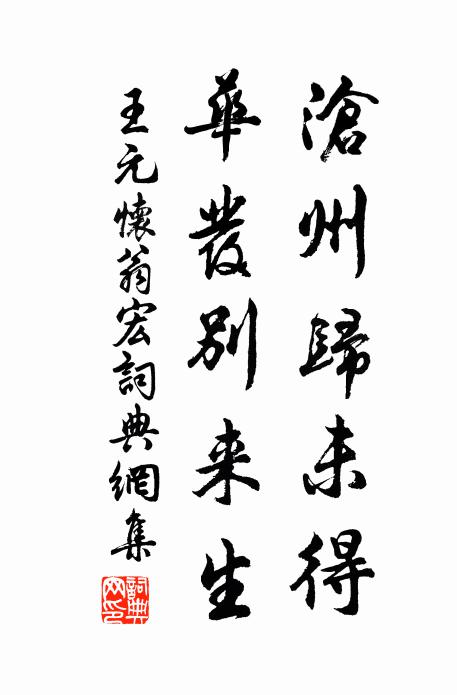 滄州歸未得
華發別來生
王元懷翁宏詞典網集
詞典網印